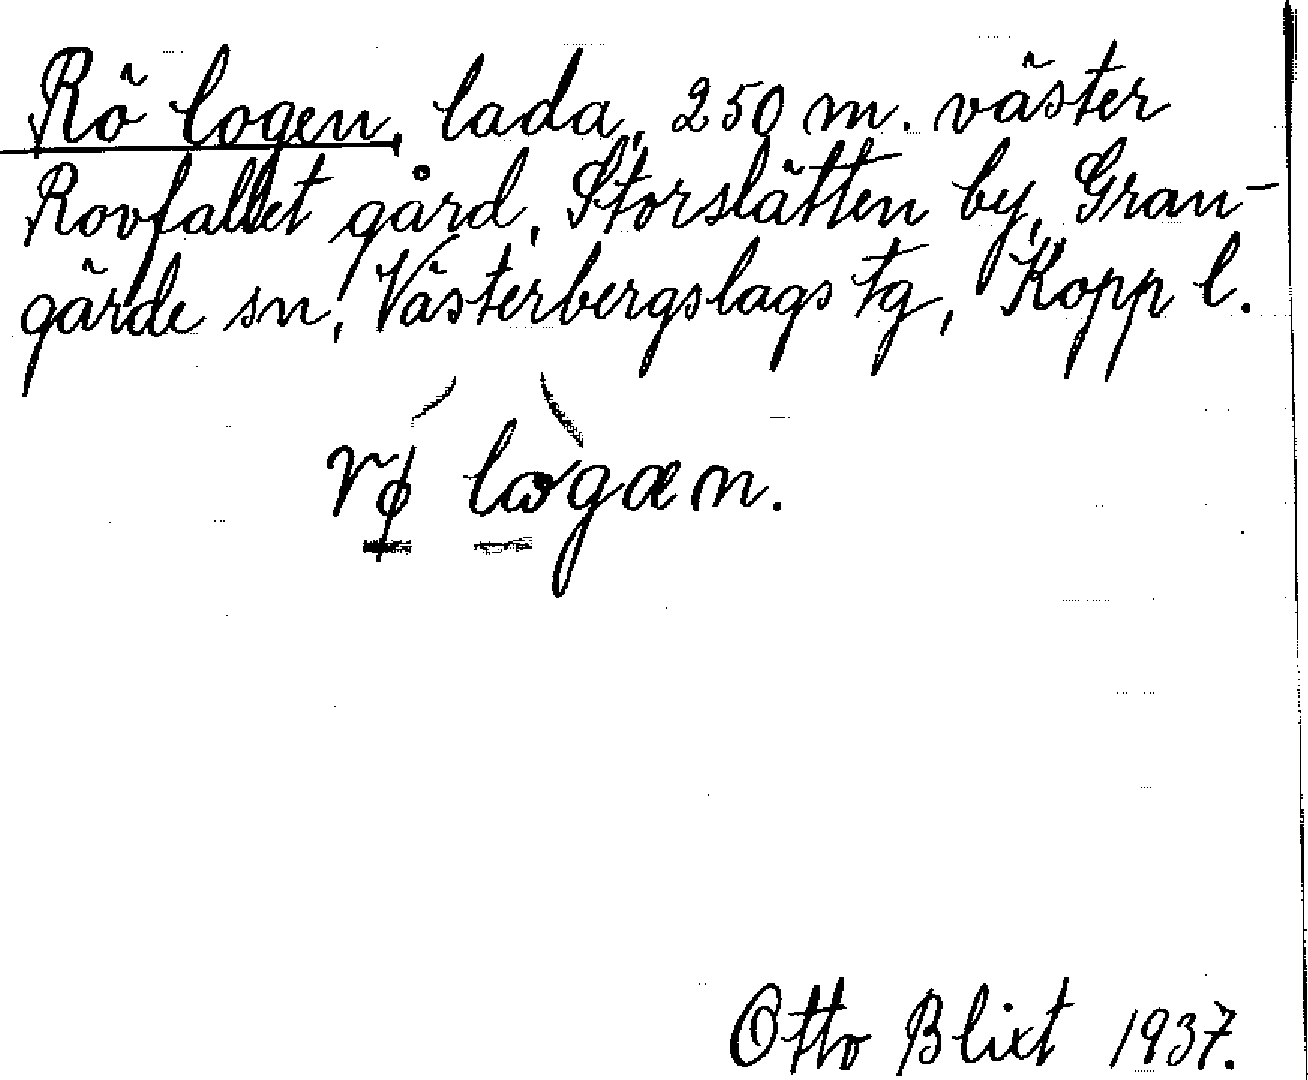 Rö logen, lada, 250 m. väster
Rovfallet gård, Storslätten by, Gran-
gärde sn, Västerbergslags tg, Kopp l.
rø lωgæn.
Otto Blixt 1937.